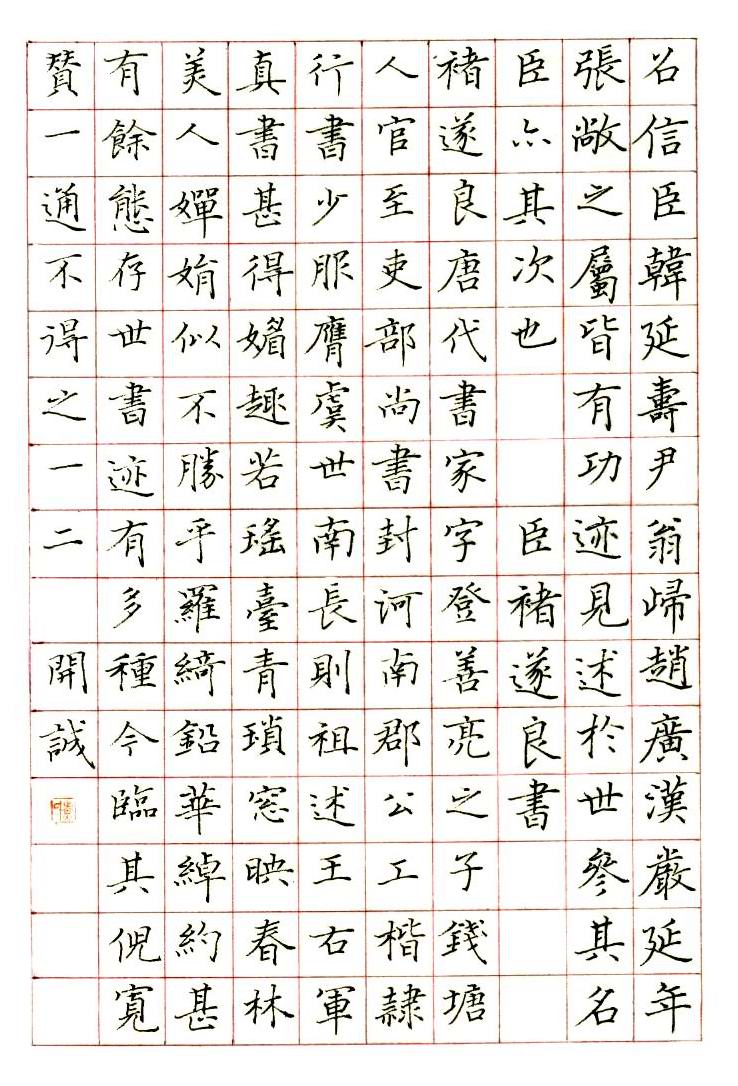 召信臣韓延壽尹翁歸趙廣漢嚴延年
張敞之屬皆有功迹見述於世參其名
臣亦其次也 臣褚遂良書
褚遂良唐代書家字登善亮之子錢塘
人官至吏部尚書封河南郡公工楷隸
行書少服膺虞世南長則祖述王右軍
真書甚得媚趣若瑤臺青瑣窓映春林
美人嬋娟似不勝乎羅綺鉛華綽約甚
有餘態存世書迹有多種今臨其倪寬
贊一通不得之一二 開誠